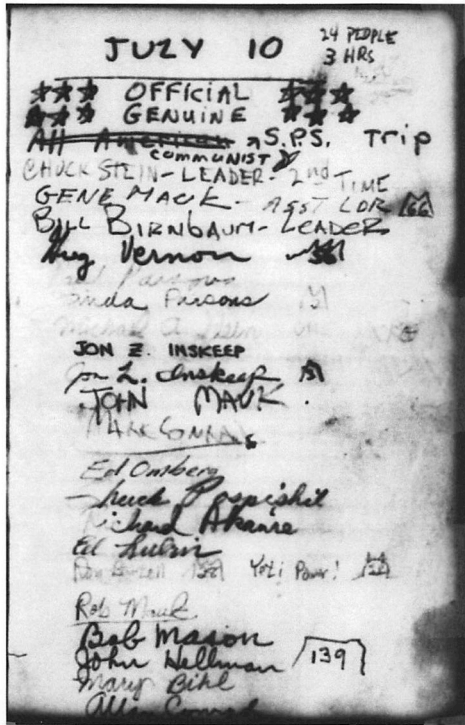 JULY 10
24 PEOPLE
3 HRS
OFFICIAL
GENUINE
All American S.P.S. Trip
COMMUNIST
CHUCK STEIN - LEADER - 2nd TIME
GENE MAUK - ASST LDR. 66
BILL BIRNBAUM - LEADER
Vernon
Parsons
Linda Parsons
JON Z. INSKEEP
Jon L. Inskeep
JOHN MAUK
Ed Omberg
Chuck Pospishil
Richard Akawie
Ed Lubin
Yeti Power!
Rob Mauk
Bob Mason
John Hellman
139
Mary Bihl
Allan Conrad